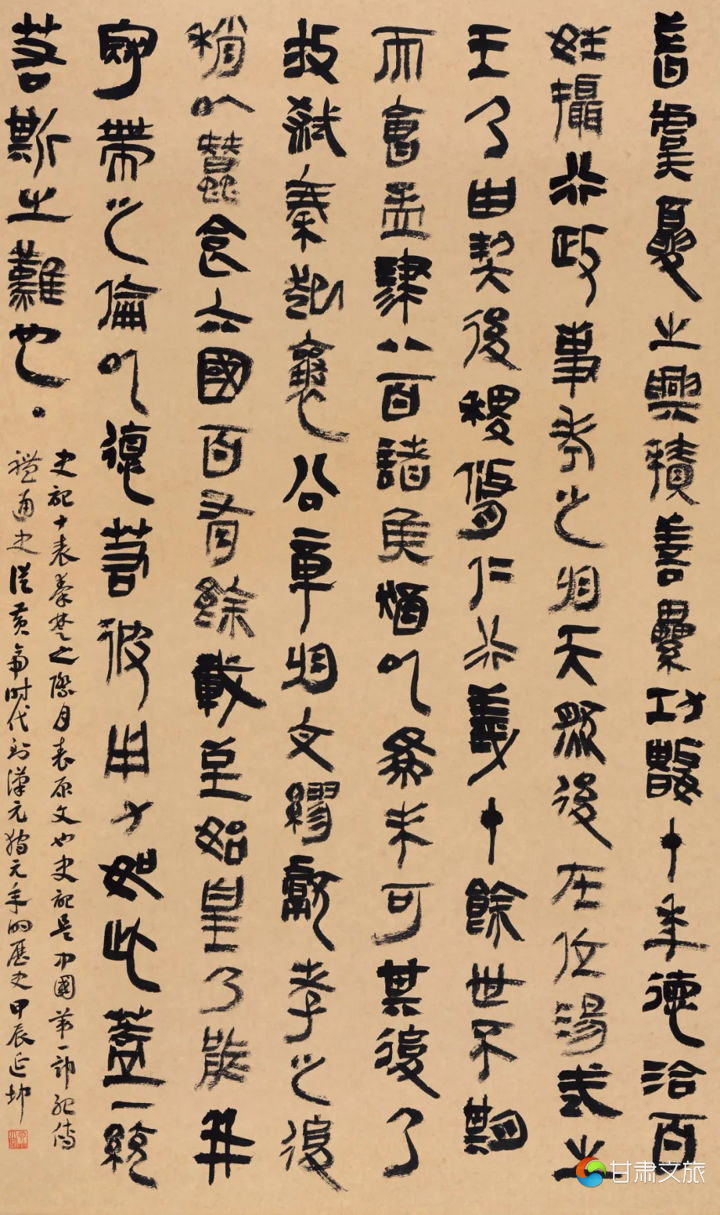 昔虞夏之興積善纍功數十年德洽百
姓攝行政事考之於天然後在位湯武之
王乃由契後稷脩仁行義十餘世不期
而會孟津八百諸侯猶以為未可其後乃
放弒秦起襄公章於文繆獻孝之後
稍以蠶食六國百有餘載至始皇乃能并
冠帶之倫以德若彼用力如此蓋一統
若斯之難也
史記十表秦楚之際月表原文也史記是中國第一部紀傳
體通史從黃帝時代到漢元狩元年的歷史甲辰延坤
甘肃文旅